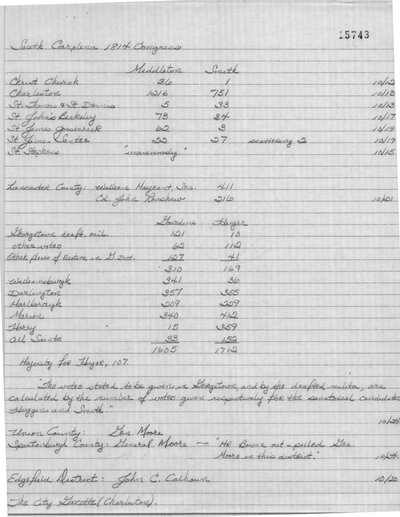 15743
South Carolina 1814 Congress
Middleton Smith
Christ Church 36 1 10/13
Charleston 1216 751 10/13
St. Thomas & St. Dennis 5 33 10/13
St. John's Berkeley 73 84 10/17
St. James Goosecreek 62 3 10/19
St. James Santee 22 27 scattering 2 10/19
St. Stephens "unanimously" 10/15
Lancaster County: William Mayrant, Esq. 411
Col. John Kershaw 216 10/21
Gourdine Huger
Georgetown draft. mil. 121 10
other votes 62 112
Other places of Election in G. Dist. 127 47
310 169
Williamsburgh 341 36
Darlington 357 355
Marlborough 209 209
Marion 340 412
Horry 15 359
All Saints 33 152
1605 1712
Majority for Huger, 107
"The votes stated to be given in Georgetown, and by the drafted militia, are
calculated by the number of votes given respectively for the senatorial candidates
Huggins and Smith."
10/24
Union County: Geo. Moore
Spartanburgh County: General Moore ~ "Mr. Evans out-polled Geo.
Moore in this district." 10/24
Edgefield District: John C. Calhoun 10/20
The City Gazette (Charleston).